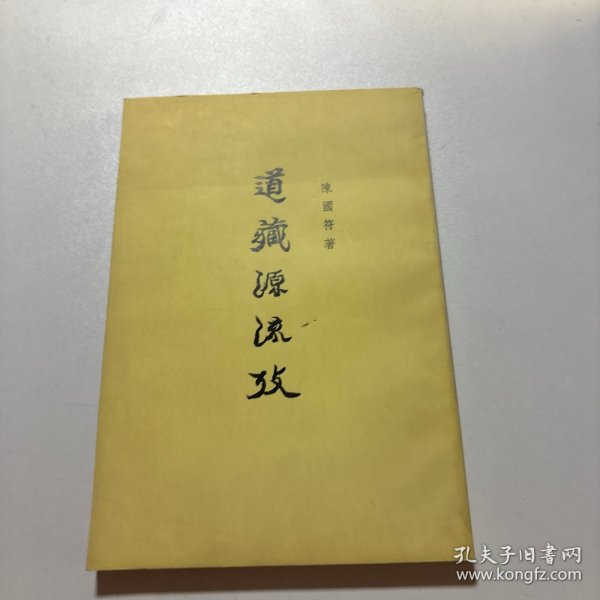 陳國符著
道藏源流攷
孔夫子旧書网
www.kongfz.com